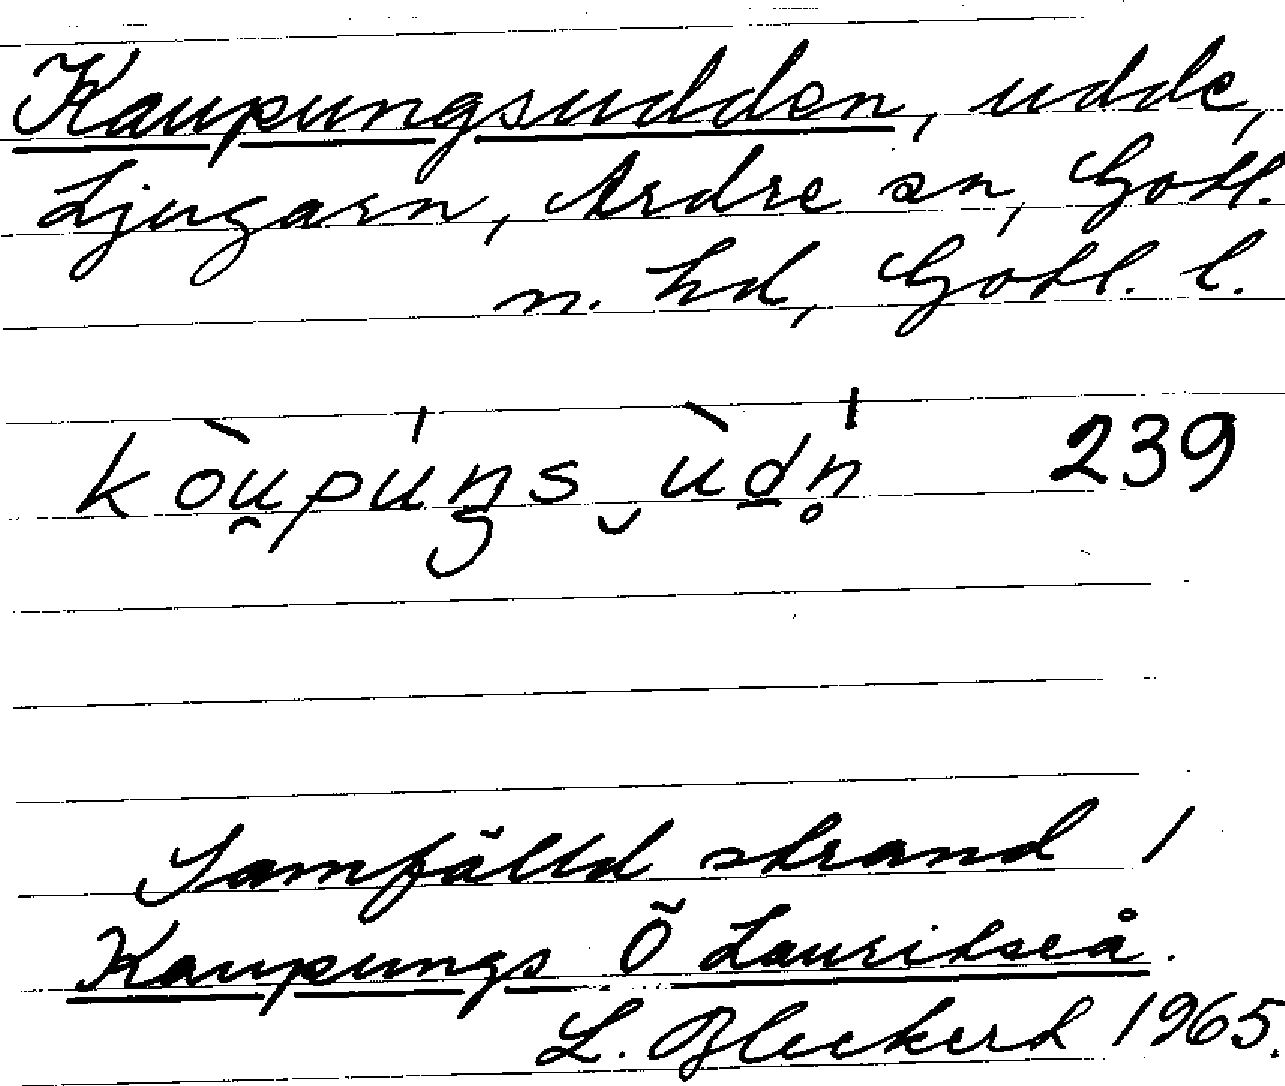 Kaupungsudden, udde,
Ljugarn, Ardre sn, Gotl.
n. hd, Gotl. l.
kòu̯púŋs ̮ ùd̲ń̥ 239
Samfälld strand /
Kaupungs Ö Lauritseå.
L. Bleckert 1965.